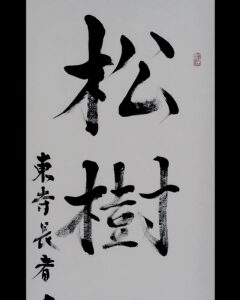 松樹
東寺長者